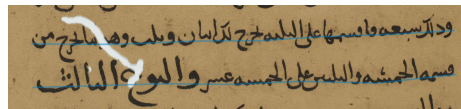 وذلك سبعه فاقسمها على الثلثه يخرج لك اثنان وثلث وهو الخرج من
قسمه الخمسه والثلثين على الخمسه عشر والنوع الثالث